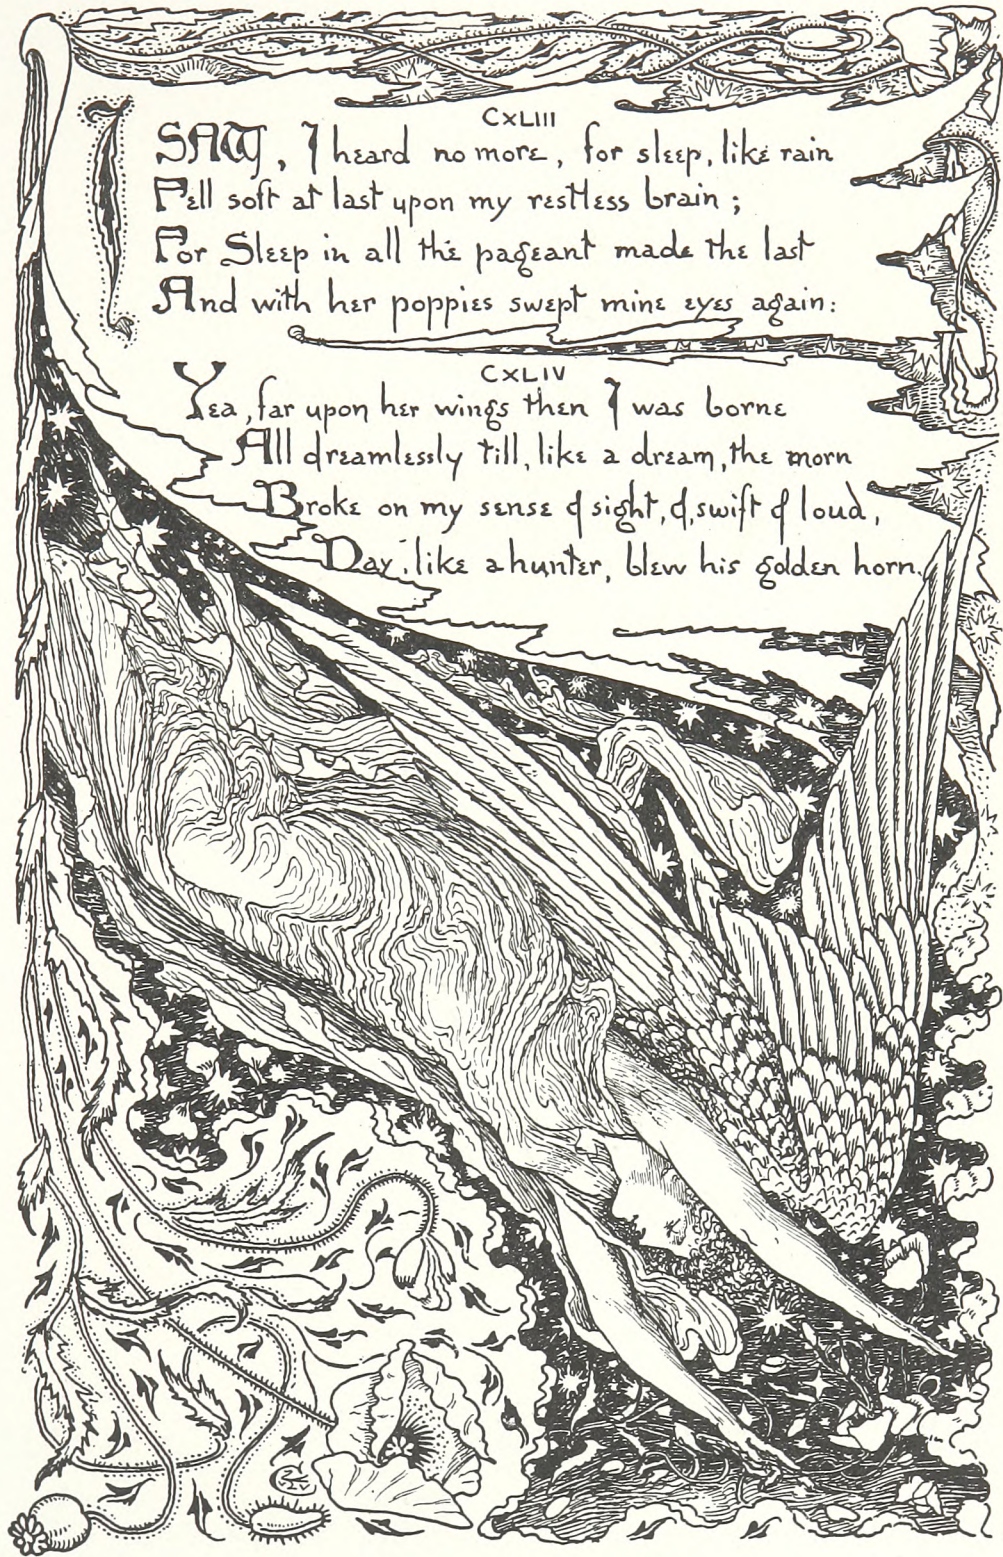 CXLIII
I SAW, I heard no more, for sleep, like rain
Fell soft at last upon my restless brain;
For Sleep in all the pageant made the last
And with her poppies swept mine eyes again:
CXLIV
Yea, far upon her wings then I was borne
All dreamlessly till, like a dream, the morn
Broke on my sense & sight, &, swift & loud,
Day, like a hunter, blew his golden horn.